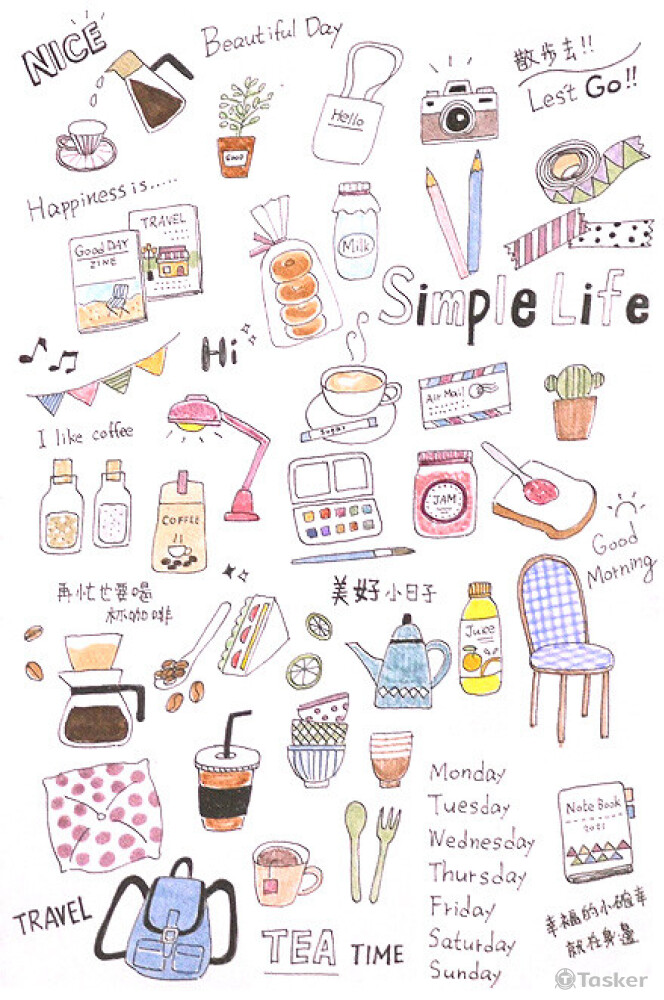 NICE
Beautiful Day
散步去!!
Les't Go!!
Hello
GOOD
Happiness is.....
TRAVEL
Good DAY
ZINE
Milk
Simple Life
Hi
Air Mail
Sugar
I like coffee
COFFEE
JAM
Good
Morning
再忙也要喝
杯咖啡
美好小日子
Juice
Monday
Tuesday
Wednesday
Thursday
Friday
Saturday
Sunday
Note Book
2021
TRAVEL
TEA TIME
幸福的小確幸
就在身邊
Tasker